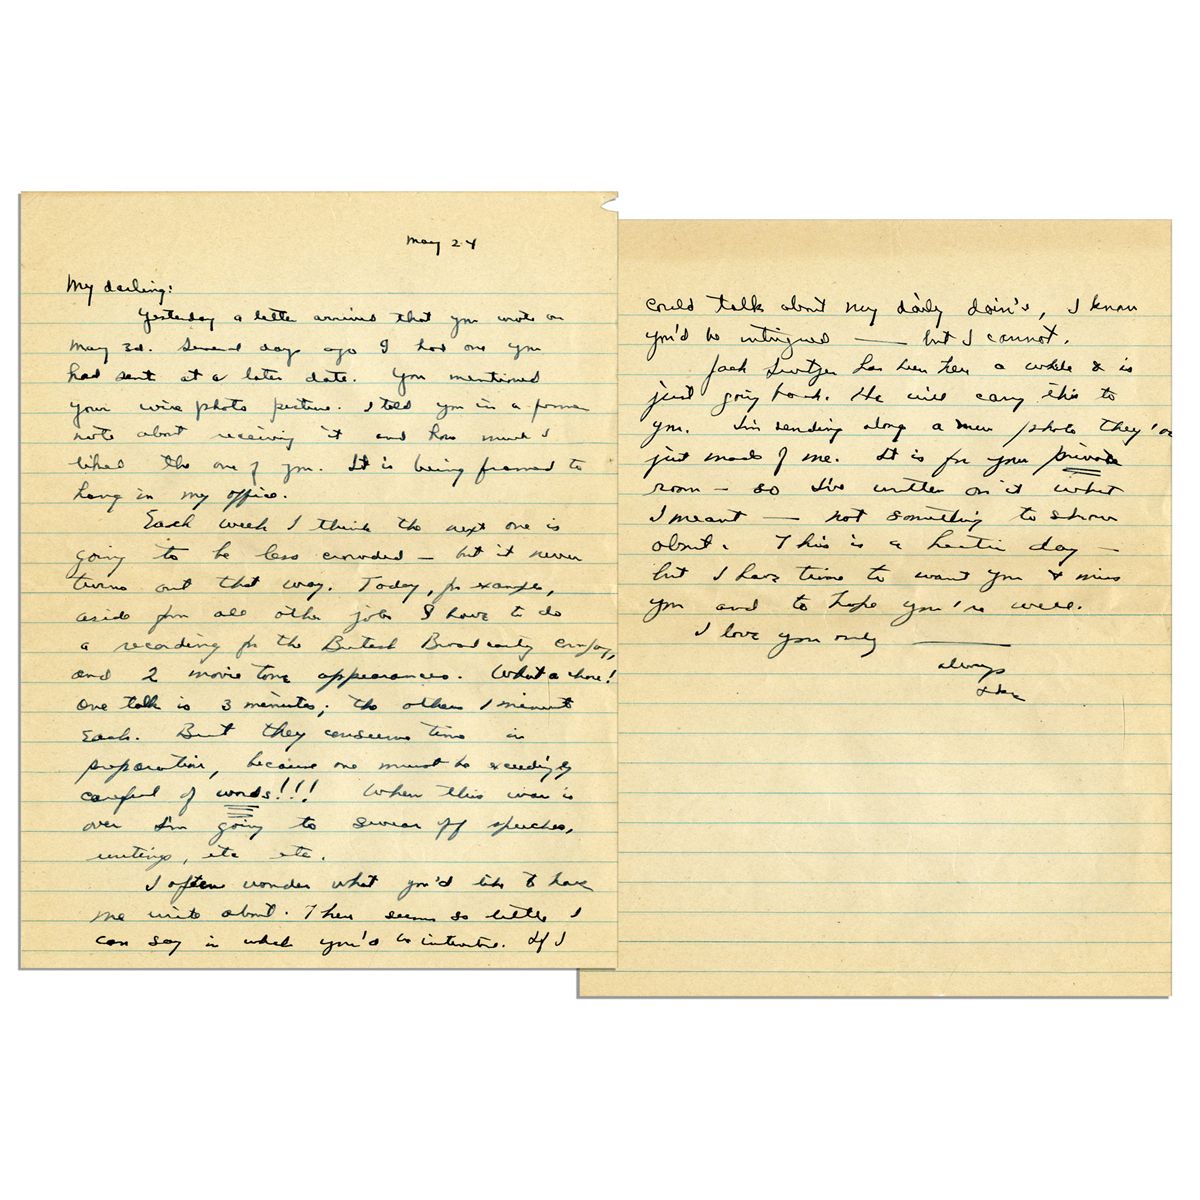 May 24
My darling:
Yesterday a letter arrived that you wrote on
May 3d. Several days ago I had one you
had sent at a later date. You mentioned
your wire photo picture. I told you in a former
note about receiving it and how much I
liked the one of you. It is being framed to
hang in my office.
Each week I think the next one is
going to be less crowded — but it never
turns out that way. Today, for example,
aside from all other jobs I have to do
a recording for the British Broadcasting Company,
and 2 movie tone appearances. What a chore!
One talk is 3 minutes; the others 1 minute
each. But they consume time in
preparation, because one must be exceedingly
careful of words!!! When this war is
over I'm going to swear off speeches,
writings, etc etc.
I often wonder what you'd like to have
me write about. There seems so little I
can say in which you'd be interested. If I
could talk about my daily doin's, I know
you'd be intrigued — but I cannot.
Jack has been here a while & is
just going back. He will carry this to
you. I'm sending along a new photo they've
just made of me. It is for your private
room — so I've written on it what
I meant — not something to show
about. This is a hectic day —
but I have time to want you & miss
you and to hope you're well.
I love you only —
always
Ike